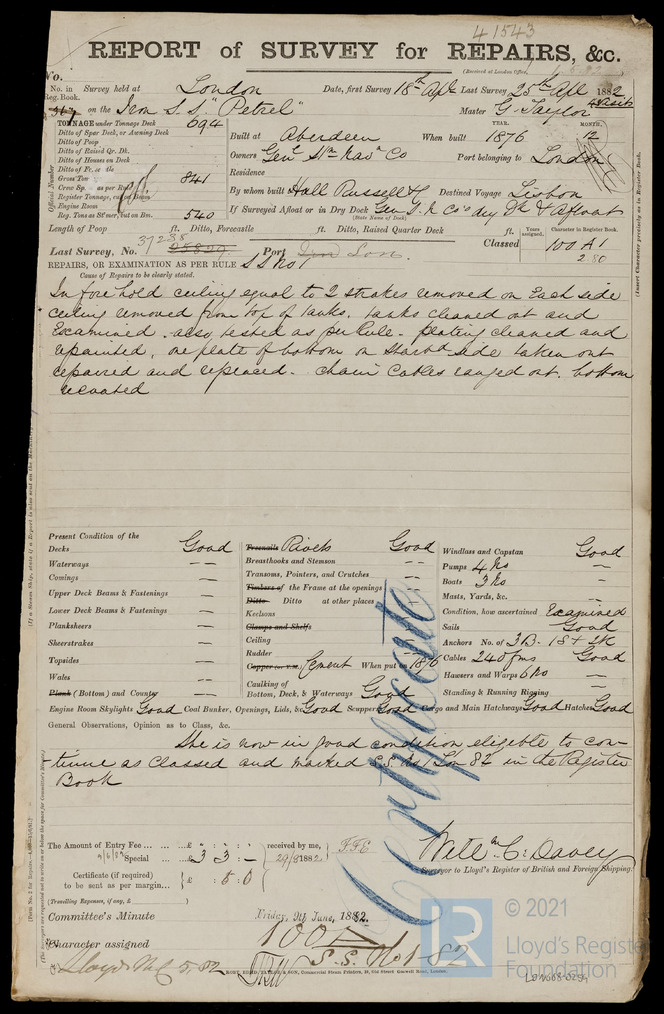 41543
REPORT of SURVEY for REPAIRS, &c.
(Received at London Office,
No.
No. in Reg. Book. Survey held at London Date, first Survey 18th Apl Last Survey 25th Apl 1882
on the Iron S.S. "Petrel" Master G. Taylor
TONNAGE under Tonnage Deck 694
Ditto of Spar Deck, or Awning Deck
Ditto of Poop
Ditto of Raised Qr. Dk.
Ditto of Houses on Deck
Gross Ton 841
Engine Room
Reg. Tons 540
Official Number
Built at Aberdeen When built YEAR. 1876 MONTH. 12
Owners Genl Stm Navn Co Port belonging to London
Residence
By whom built Hall Russell & Co Destined Voyage Lisbon
If Surveyed Afloat or in Dry Dock Gen S. N. Co's dry Dk & Afloat
(State Name of Dock)
Length of Poop ft. Ditto, Forecastle ft. Ditto, Raised Quarter Deck ft.
Years assigned. Character in Register Book.
Last Survey, No. 37238 25829 Port Lon. Classed 100 A1
2.80
REPAIRS, OR EXAMINATION AS PER RULE S S No 1
Cause of Repairs to be clearly stated.
In fore hold ceiling equal to 2 strakes removed on Each side
ceiling removed from top of tanks. tanks cleaned out and
Examined. also tested as per Rule. plating cleaned and
repainted, one plate of bottom on Starbd side taken out
repaired and replaced. chain cables ranged out. bottom
recoated
Present Condition of the
Decks Good
Waterways
Comings
Upper Deck Beams & Fastenings
Lower Deck Beams & Fastenings
Planksheers
Sheerstrakes
Topsides
Wales
Plank (Bottom) and Counter
Treenails Rivets Good
Breasthooks and Stemson
Transoms, Pointers, and Crutches
Timbers of the Frame at the openings
Ditto Ditto at other places
Keelsons
Clamps and Shelfs
Ceiling
Rudder
Copper Cement When put on 1876
Caulking of
Bottom, Deck, & Waterways Good
Windlass and Capstan Good
Pumps 4 No
Boats 3 No
Masts, Yards, &c.
Condition, how ascertained Examined
Sails Good
Anchors No. of 3B. 1S + 2K
Cables 240 fms Good
Hawsers and Warps 6 No
Standing & Running Rigging
Engine Room Skylights Good Coal Bunker, Openings, Lids, &c. Good Scuppers Good Cargo and Main Hatchways Good Hatches Good
General Observations, Opinion as to Class, &c.
She is now in good condition eligible to con-
tinue as classed and marked S.S. No 1 Lon 82 in the Register
Book
Certificate
The Amount of Entry Fee ... £ : : received by me,
Special ... £ 3 3 : -
Certificate (if required) to be sent as per margin... £ : 5.0
(Travelling Expenses, if any, £ )
Willm C. Davey
Surveyor to Lloyd's Register of British and Foreign Shipping.
Committee's Minute Friday, 9th June, 1882.
Character assigned 100 A
S.S. No 1-82
Lloyds M.C. 5.82
© 2021
Lloyd's Register
Foundation